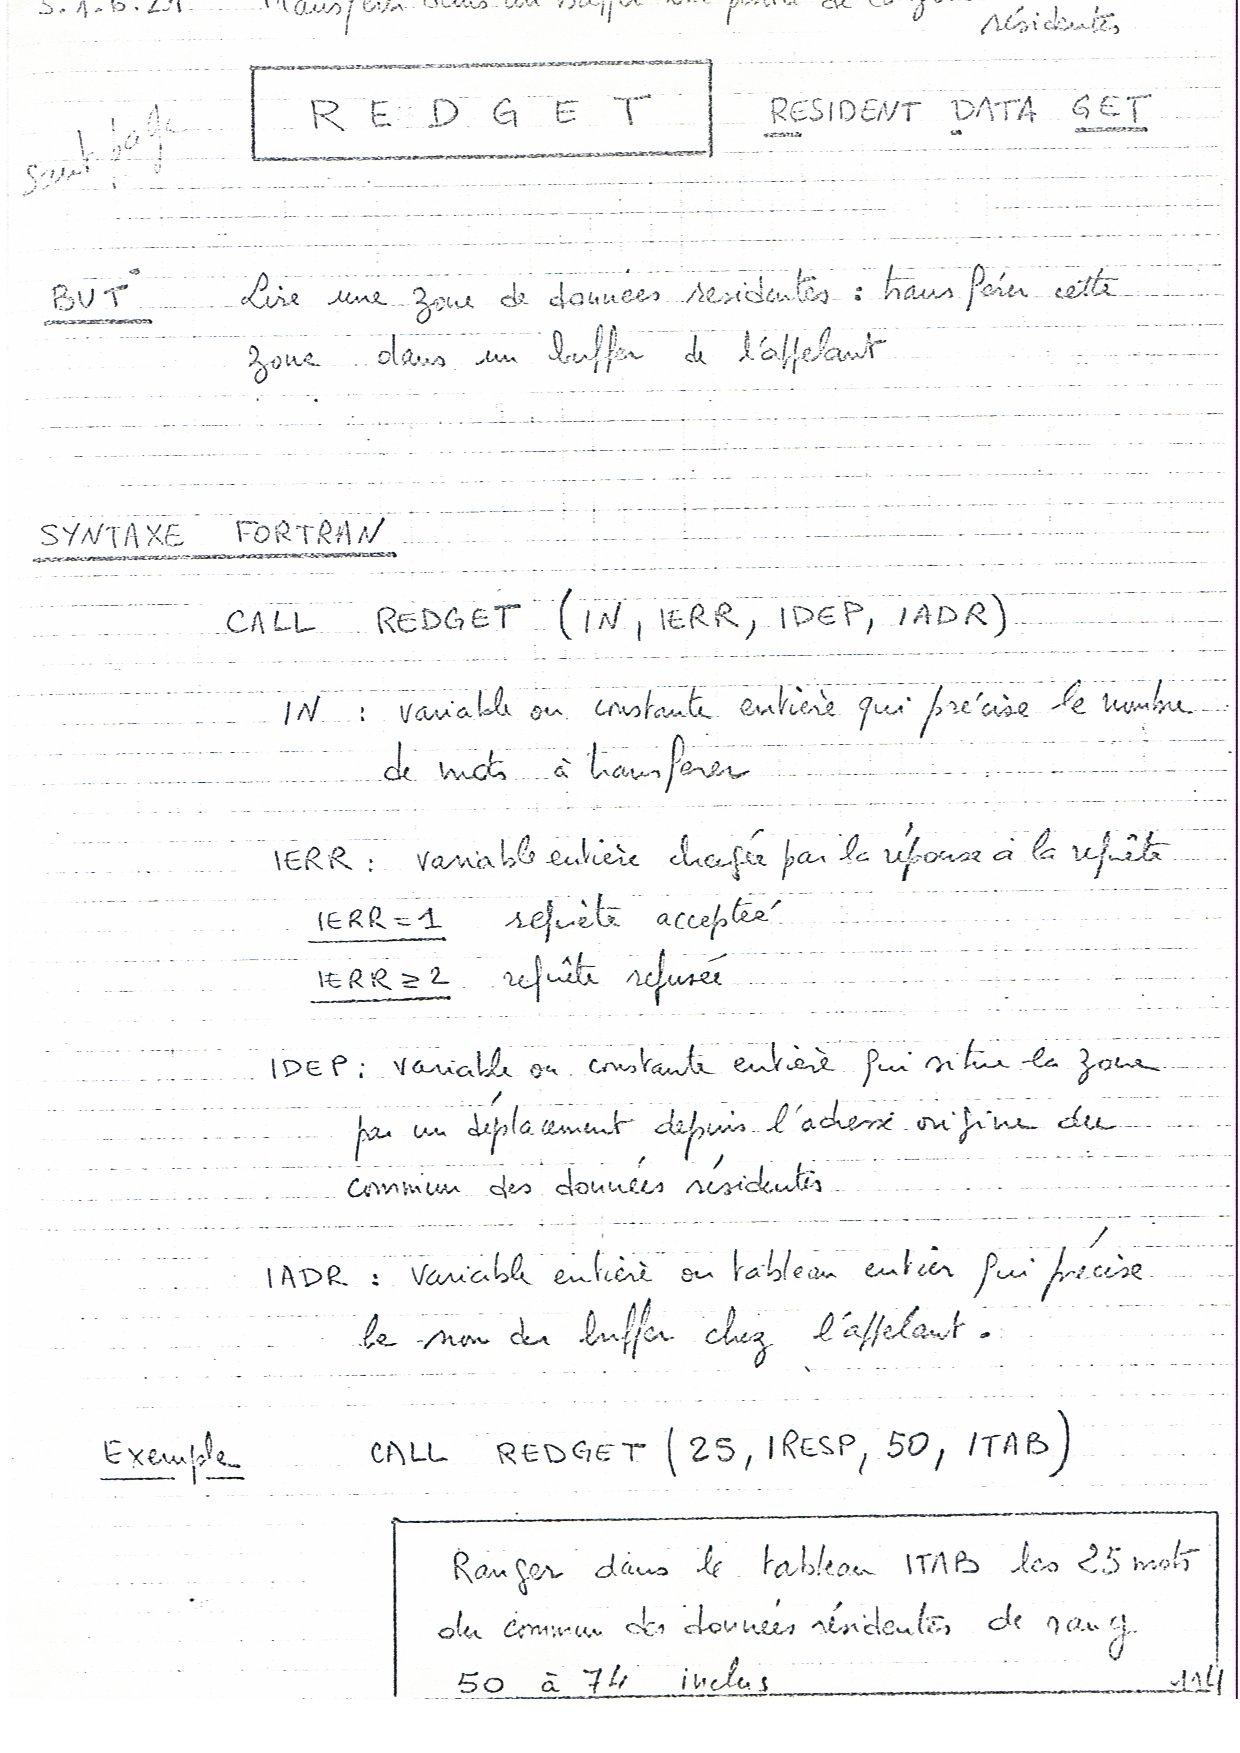 S.1.B.21. Transférer dans un buffer une partie de la zone
résidentes
REDGET RESIDENT DATA GET
saut page
BUT Lire une zone de données residentes : transférer cette
zone dans un buffer de l'appelant
SYNTAXE FORTRAN
CALL REDGET (IN, IERR, IDEP, IADR)
IN : variable ou constante entière qui précise le nombre
de mots à transferer
IERR : variable entière chargée par la réponse à la requête
IERR = 1 requète acceptée
IERR ≥ 2 requête refusée
IDEP : variable ou constante entière qui situe la zone
par un déplacement depuis l'adresse origine du
commun des données résidentes
IADR : variable entière ou tableau entier qui précise
le nom du buffer chez l'appelant.
Exemple CALL REDGET (25, IRESP, 50, ITAB)
Ranger dans le tableau ITAB les 25 mots
du commun des données résidentes de rang
50 à 74 inclus
114